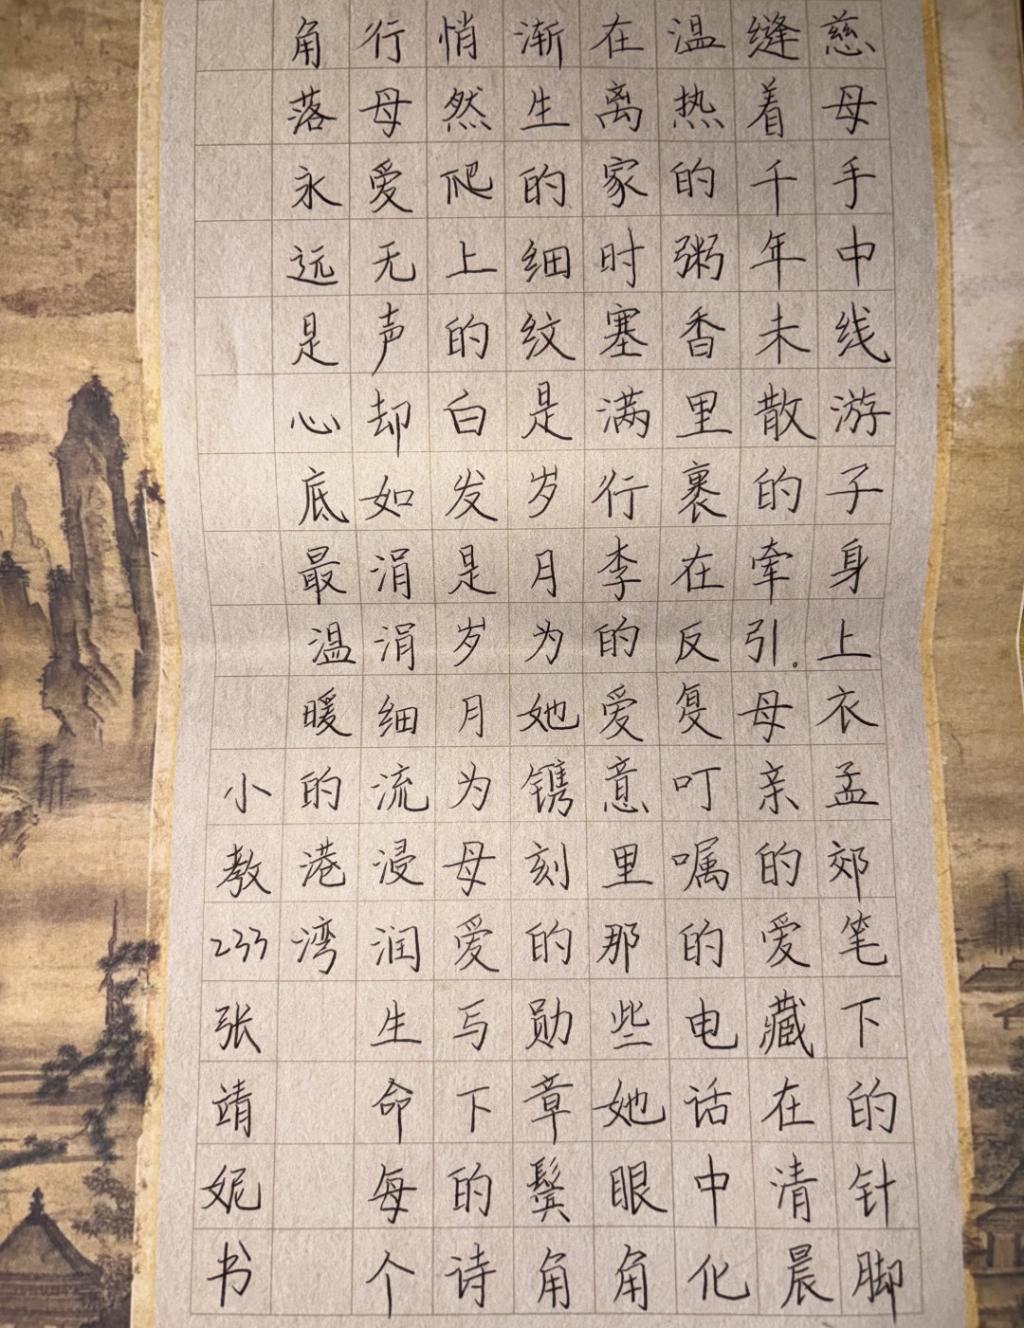 慈母手中线游子身上衣孟郊笔下的针脚
缝着千年未散的牵引.母亲的爱藏在清晨
温热的粥香里裹在反复叮嘱的电话中化
在离家时塞满行李的爱意里那些她眼角
渐生的细纹是岁月为她镌刻的勋章鬓角
悄然爬上的白发是岁月为母爱写下的诗
行母爱无声却如涓涓细流浸润生命每个
角落永远是心底最温暖的港湾
小教233张靖妮书